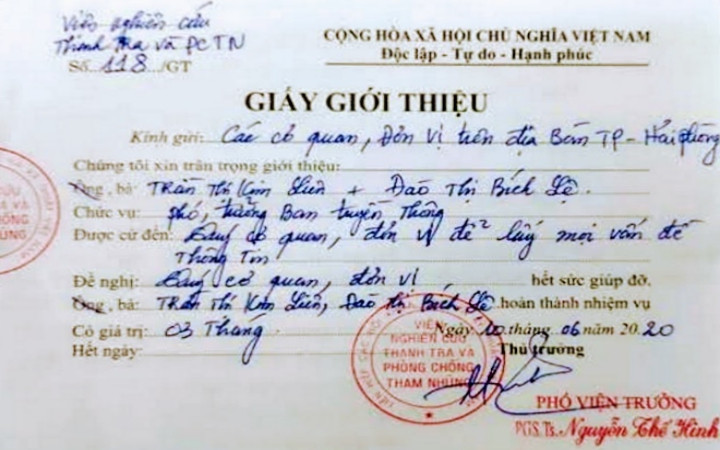 Viện nghiên cứu
Thanh Tra và PCTN
Số 118 /GT
CỘNG HÒA XÃ HỘI CHỦ NGHĨA VIỆT NAM
Độc lập - Tự do - Hạnh phúc
GIẤY GIỚI THIỆU
Kính gửi: Các cơ quan, Đơn vị trên địa Bàn TP - Hải phòng
Chúng tôi xin trân trọng giới thiệu:
Ông, bà: Trần Thị Kim Liên + Đào Thị Bích Lệ.
Chức vụ: phó, trưởng Ban truyền Thông
Được cử đến: Quý cơ quan, đơn vị để lấy mọi vấn đề
Thông Tin
Đề nghị: Quý cơ quan, đơn vị hết sức giúp đỡ.
Ông, bà: Trần Thị Kim Liên, Đào Thị Bích Lệ hoàn thành nhiệm vụ
Có giá trị: 03 Tháng Ngày 10 tháng 06 năm 20.20
Hết ngày: Thủ trưởng
VIỆN
NGHIÊN CỨU
THANH TRA VÀ
PHÒNG CHỐNG
THAM NHŨNG
PHÓ VIỆN TRƯỞNG
PGS.Ts. Nguyễn Thế Hinh